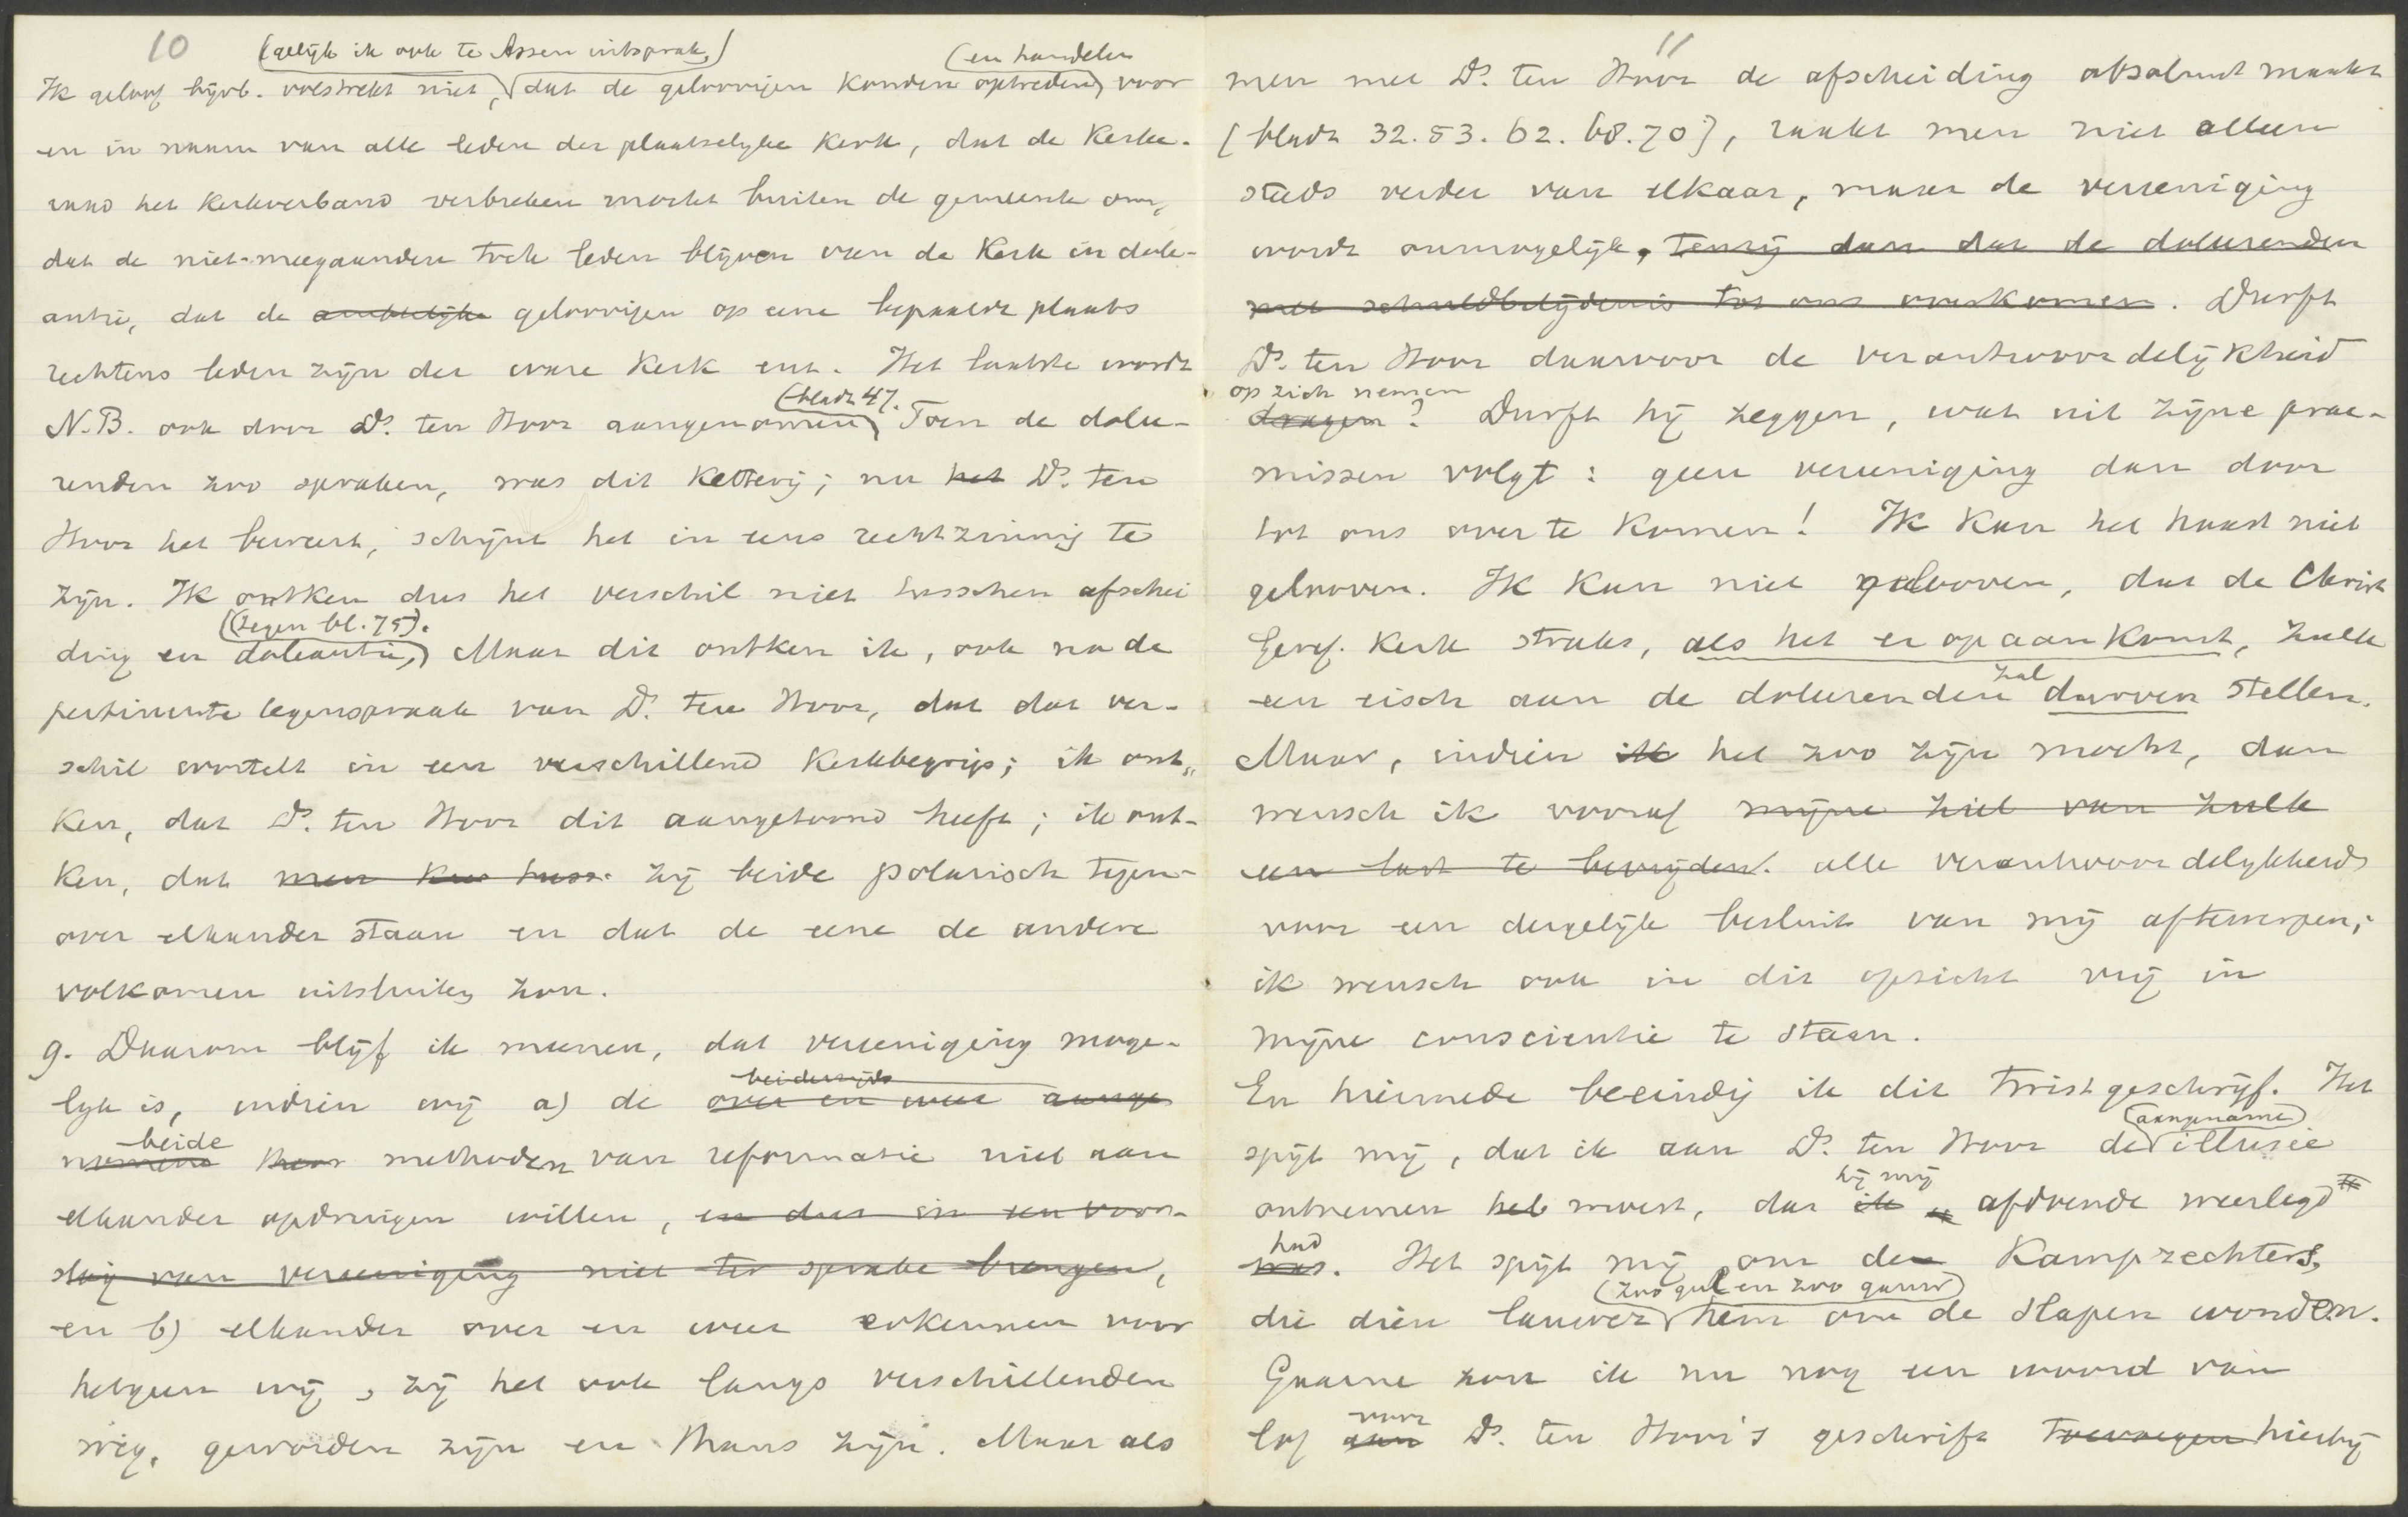 10
(gelijk ik ook te Assen uitsprak,) (en handelen
Ik geloof bijvb. volstrekt niet, dat de geloovigen konden optreden) voor
en in naam van alle leden der plaatselijke Kerk, dat de Kerke-
raad het Kerkverband verbreken mocht buiten de gemeente om,
dat de niet-meegaanden toch leden blijven van de Kerk in dole-
antie, dat de ambtelijke geloovigen op eene bepaalde plaats
rechtens leden zijn der ware Kerk enz. Het laatste wordt
(bladz 47.
N.B. ook door Ds. ten Hoor aangenomen) Toen de dolee-
renden zoo spraken, was dit Ketterij; nu het Ds. ten
Hoor het beweert, schijnt het in eens rechtzinnig te
zijn. Ik ontken dus het verschil niet tusschen afschei
(tegen bl. 75).
ding en doleantie,) Maar dit ontken ik, ook na de
pertinente tegenspraak van Ds. ten Hoor, dat dat ver-
schil wortelt in een verschillend Kerkbegrip; ik ont„
ken, dat Ds. ten Hoor dit aangetoond heeft; ik ont-
ken, dat men kan tuss. zij beide polarisch tegen-
over elkander staan en dat de eene de andere
volkomen uitsluiten zou.
9. Daarom blijf ik meenen, dat vereeniging moge-
beiderzijds
lijk is, indien wij a) de over en weer aange
beide
nomene methoden van reformatie niet aan
elkander opdringen willen, en dus in een voor-
slag van vereeniging niet ter sprake brengen,
en b) elkander over en weer erkennen voor
hetgeen wij, zij het ook langs verschillenden
weg, geworden zijn en thans zijn. Maar als
11
men met Ds. ten Hoor de afscheiding absoluut maakt
(bladz 32. 53. 62. 68. 70), raakt men niet alleen
steeds verder van elkaar, maar de vereeniging
wordt onmogelijk, tenzij dan dat de doleerenden
met schuldbelijdenis tot ons overkomen. Durft
Ds. ten Hoor daarvoor de verantwoordelijkheid
op zich nemen
dragen? Durft hij zeggen, wat uit zijne prae-
missen volgt: geen vereeniging dan door
tot ons over te komen! Ik kan het haast niet
gelooven. Ik kan niet gelooven, dat de Christ
Geref. Kerk straks, als het er op aan komt, zulk
zal
een eisch aan de doleerenden durven stellen.
Maar, indien ik het zoo zijn mocht, dan
wensch ik vooraf mijne ziel van zulk
een last te bevrijden. alle verantwoordelijkheid
voor een dergelijk besluit van mij afteworpen;
ik wensch ook in dit opzicht vrij in
mijne conscientie te staan.
En hiermede beeindig ik dit twistgeschrijf. Het
(aangename)
spijt mij, dat ik aan Ds. ten Hoor de illusie
hij mij
ontnemen heb moest, dat ik afdoende weerlegd
had
was. Het spijt mij om de Kamprechters,
(zoo gul en zoo gauw)
die dien lauwer hem om de slapen wonden.
Gaarne zou ik nu nog een woord van
voor
lof aan Ds. ten Hoor's geschrift toevoegen hierbij